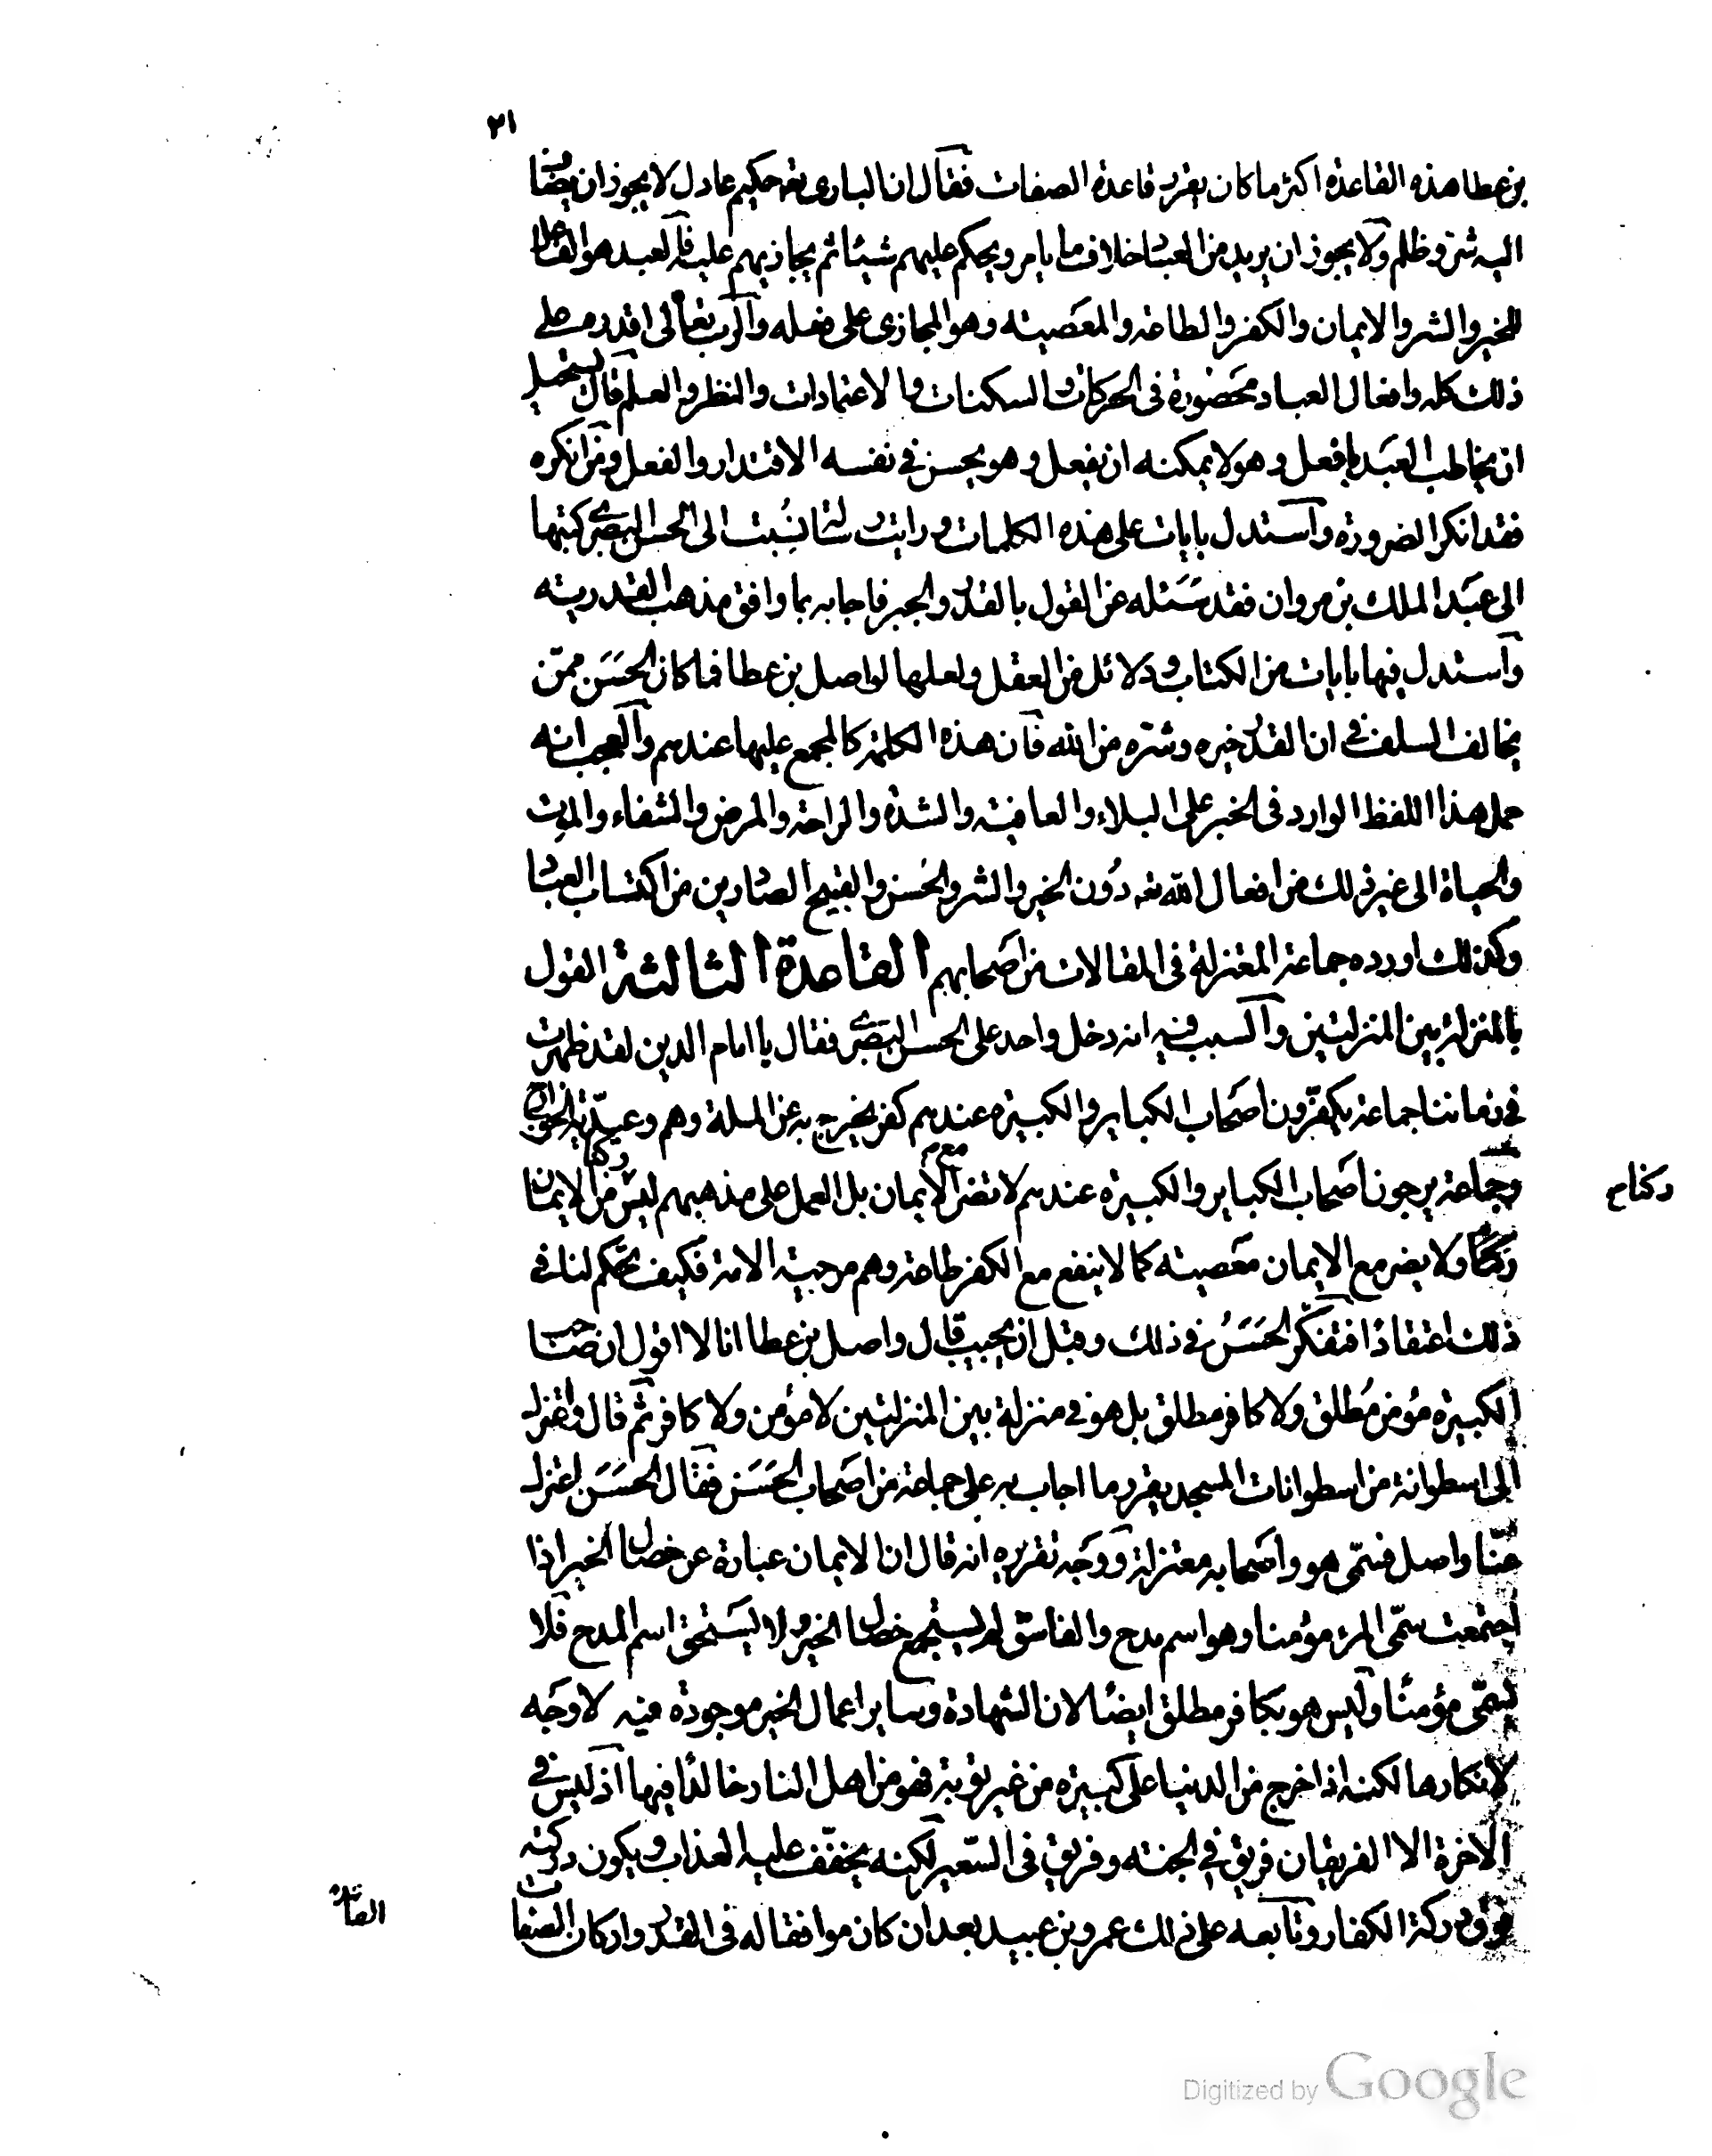 ٢١
بن عطا هذه القاعدة اكثر ما كان يقرر قاعدة الصفات فقال ان البارى تعه حكيم عادل لا يجوز ان يضاف
اليه شر وظلم ولا يجوز ان يريد من العباد خلاف ما يامر ويحكم عليهم شيئا ثم يجازيهم عليه فالعبد هو الفاعل
للخير والشر والايمان والكفر والطاعة والمعصيته وهو المجازى على فعله والرب تعالى اقدره على
ذلك كله وافعال العباد محصورة فى الحركات والسكنات والاعتمادات والنظر والعلم قال يستحيل
ان يخاطب العبد بافعل وهو لا يمكنه ان يفعل وهو يحس فى نفسه الاقتدار والفعل ومن انكره
فقد انكر الضرورة واستدل بايات على هذه الكلمات ورايت رسالة نسبت الى الحسن البصرى كتبها
الى عبد الملك بن مروان فقد سئله عن القول بالقدر والجبر فاجابه بما وافق مذهب القدريته
واستدل فيها بايات من الكتاب ودلائل من العقل ولعلها لواصل بن عطا فما كان الحسن ممّن
يخالف السلف فى ان القدر خيره وشره من الله فان هذه الكلمة كالمجمع عليها عندهم والعجب انه
حمل هذا اللفظ الوارد فى الخبر على البلاء والعافيته والشدة والراحة والمرض والشفاء والموت
والحياة الى غير ذلك من افعال الله تعه دون الخير والشر والحسن والقبيح الصادرين من اكتساب العباد
وكذلك اورده جماعة المعتزلة فى المقالات من اصحابهم القاعدة الثالثة القول
بالمنزلة بين المنزلتين والسبب فيه انه دخل واحد على الحسن البصرى فقال يا امام الدين لقد ظهرت
فى زماننا جماعة يكفّرون اصحاب الكباير والكبيرة عندهم كفر يخرج به عن الملة وهم وعيديّة الخوارج
وجماعة يرجون اصحاب الكباير والكبيرة عندهم لا تضر مع الايمان بل العمل على مذهبهم ليس من الايمان
ركنا ولا يضر مع الايمان معصيته كما لا ينفع مع الكفر طاعة وهم مرجيته الامة فكيف تحكم لنا فى
ذلك اعتقادًا فتفكّر الحسن فى ذلك وقبل ان يجيب قال واصل بن عطا انا لا اقول ان صاحب
الكبيرة مؤمن مطلق ولا كافر مطلق بل هو فى منزلة بين المنزلتين لا مؤمن ولا كافر ثم قام واعتزل
الى اسطوانة من اسطوانات المسجد يقرر ما اجاب به على جماعة من اصحاب الحسن فقال الحسن اعتزل
عنّا واصل فسمّى هو واصحابه معتزلة ووجه تقريره انه قال ان الايمان عبارة عن خصال الخير اذا
اجتمعت سمّى المرء مؤمنا وهو اسم مدح والفاسق لم يستجمع خصال الخير ولا يستحق اسم المدح فلا
يسمّى مؤمنًا وليس هو بكافر مطلق ايضًا لان الشهادة وساير اعمال الخير موجودة فيه لا وجه
لانكارها لكنه اذا خرج من الدنيا على كبيرة من غير توبة فهو من اهل النار خالدًا فيها اذ ليس فى
الاخرة الا الفريقان فريق فى الجنته وفريق فى السّعير لكنه يخفّف عليه العذاب ويكون دركته
فوق دركة الكفار وتابعه على ذلك عمرو بن عبيد بعد ان كان موافقا له فى القدر وانكار الصفات
Digitized by Google